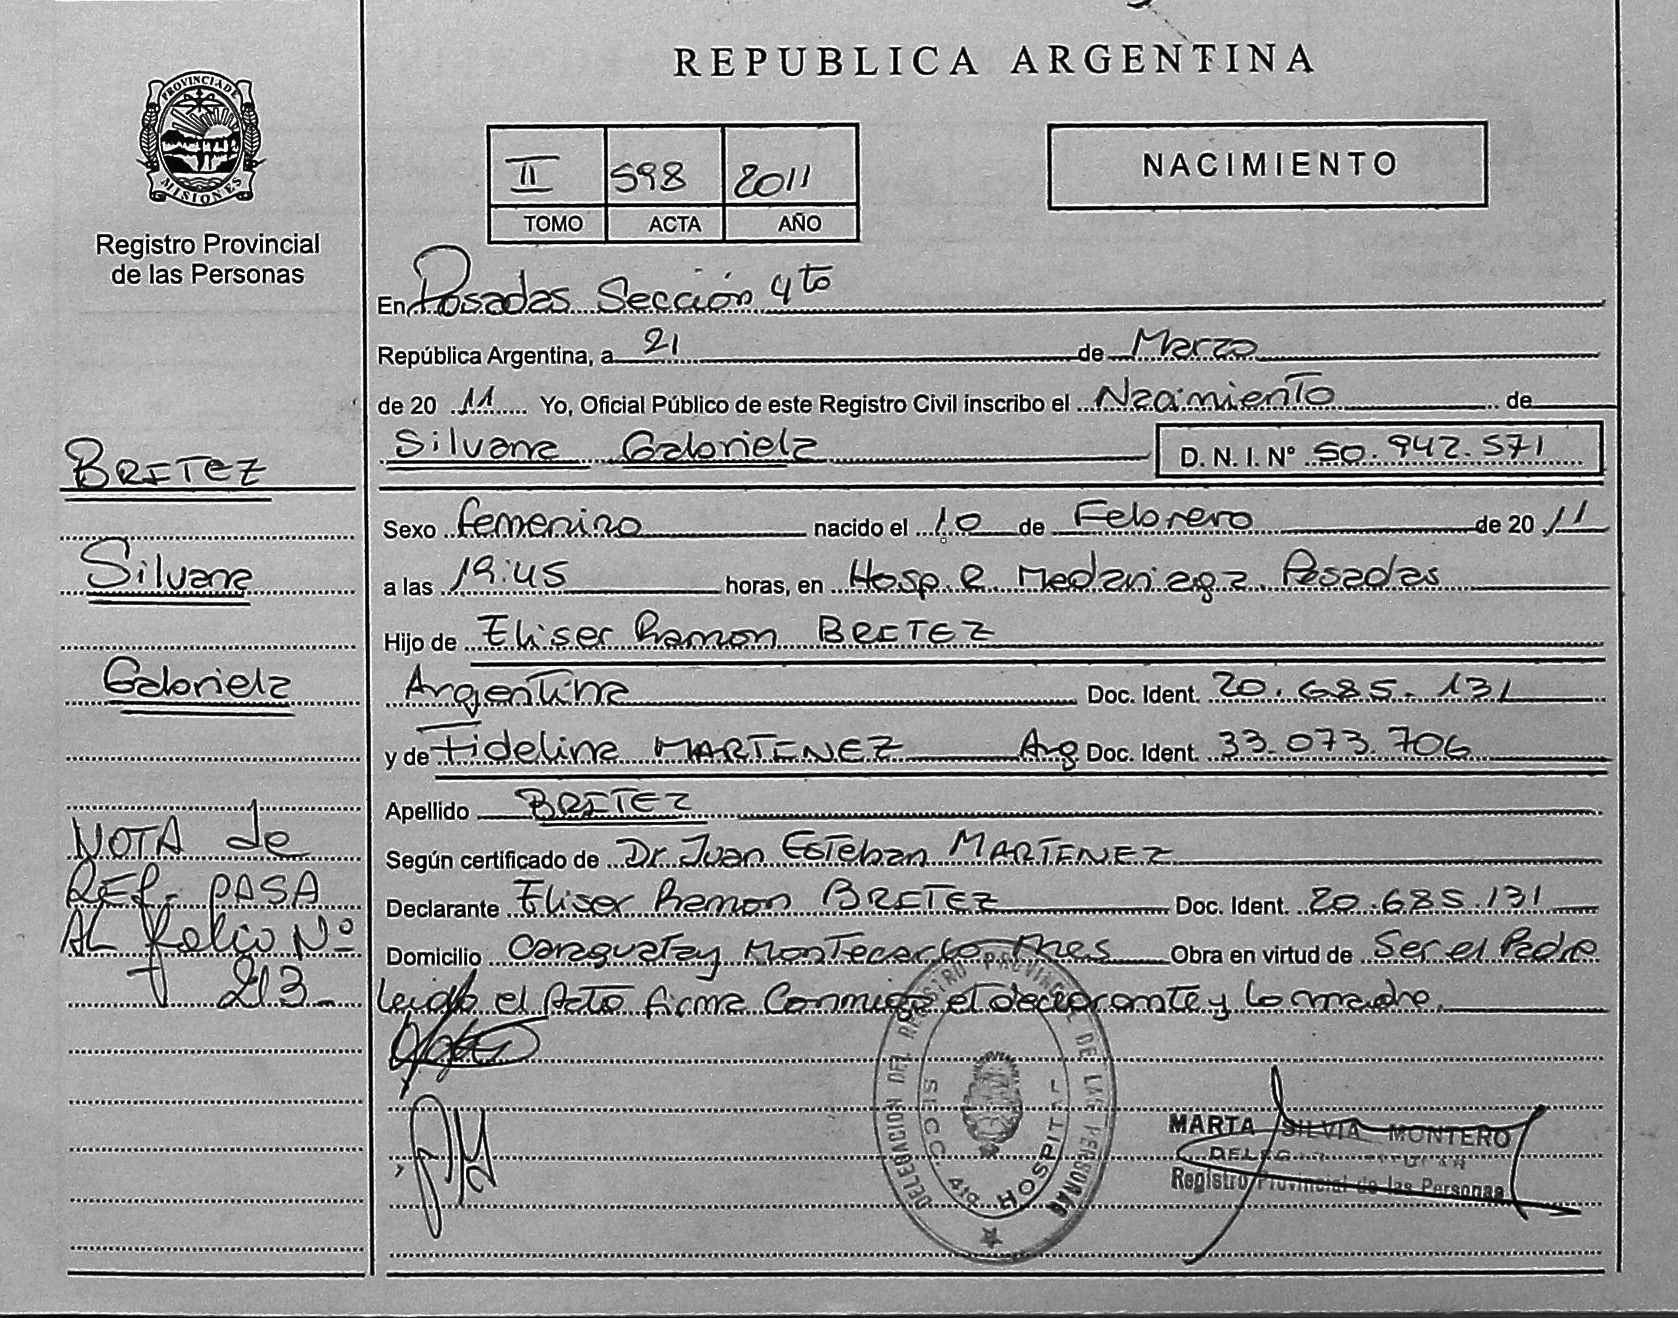 REPUBLICA ARGENTINA
PROVINCIA DE MISIONES
Registro Provincial
de las Personas
II 598 2011
TOMO ACTA AÑO
NACIMIENTO
En Posadas Sección 4to
República Argentina, a 21 de Marzo
de 20 11 Yo, Oficial Público de este Registro Civil inscribo el Nacimiento de
Silvana Gabriela D. N. I. Nº 50.942.571
Sexo femenino nacido el 10 de Febrero de 20 11
a las 19:45 horas, en Hosp. R Madariaga Posadas
Hijo de Eliser Ramon BRITEZ
Argentina Doc. Ident. 20.685.131
y de Fidelina MARTINEZ Arg Doc. Ident. 33.073.706
Apellido BRITEZ
Según certificado de Dr. Juan Esteban MARTINEZ
Declarante Eliser Ramon BRITEZ Doc. Ident. 20.685.131
Domicilio Caraguatay Montecarlo Mnes Obra en virtud de Ser el Padre
Leido el Acto firma Conmigo el declarante y la madre.
BRITEZ
Silvana
Gabriela
NOTA de
REF. PASA
AL folio Nº
213
DELEGACION DEL REGISTRO PROVINCIAL DE LAS PERSONAS
SECC. 4ta. HOSPITAL
MARTA SILVIA MONTERO
DELEGADA TITULAR
Registro Provincial de las Personas